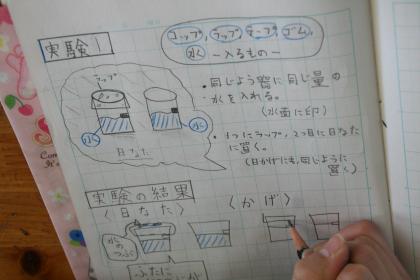 実験1
コップ、ラップ、テープ、ゴム、
水 ―入るもの―
ラップ
水
水
日なた
・同じよう器に同じ量の
水を入れる。
(水面に印)
・1つにラップ、2つ目に日なた
に置く。
(日かげにも、同じように
置く)
実験の結果
〈日なた〉
〈かげ〉
水の
つぶ
ふたに